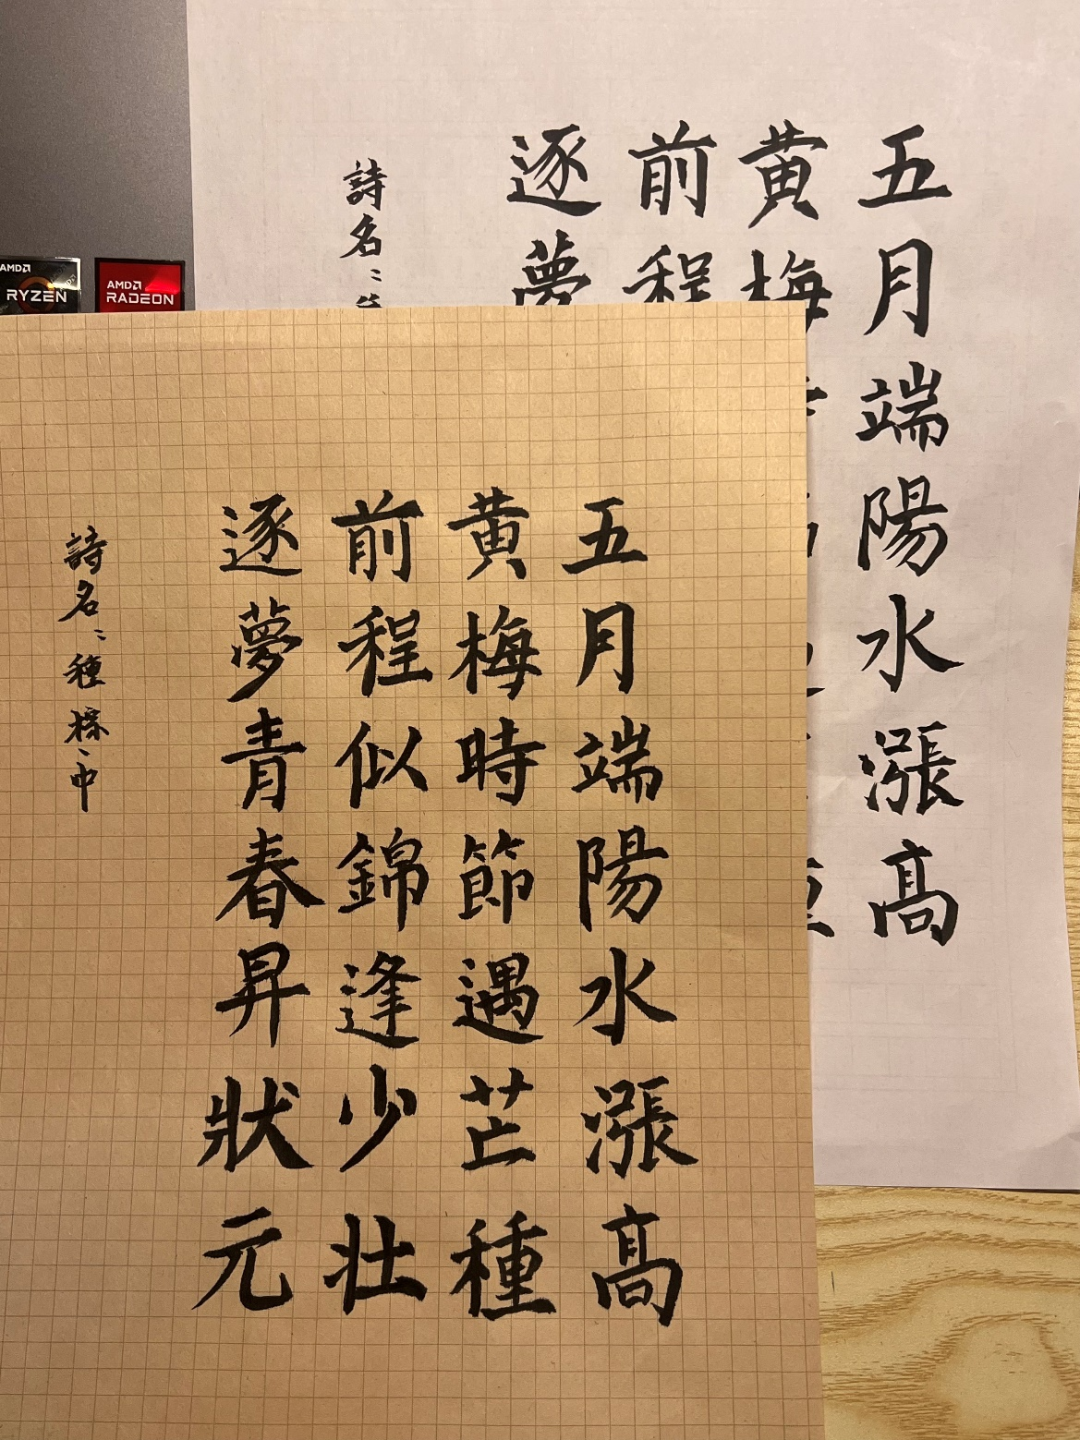 AMD
RYZEN
AMD
RADEON
五月端陽水漲髙
黄梅
前程
逐夢
詩名：
五月端陽水漲髙
黄梅時節遇芒種
前程似錦逢少壯
逐夢青春昇狀元
詩名：種粽、中